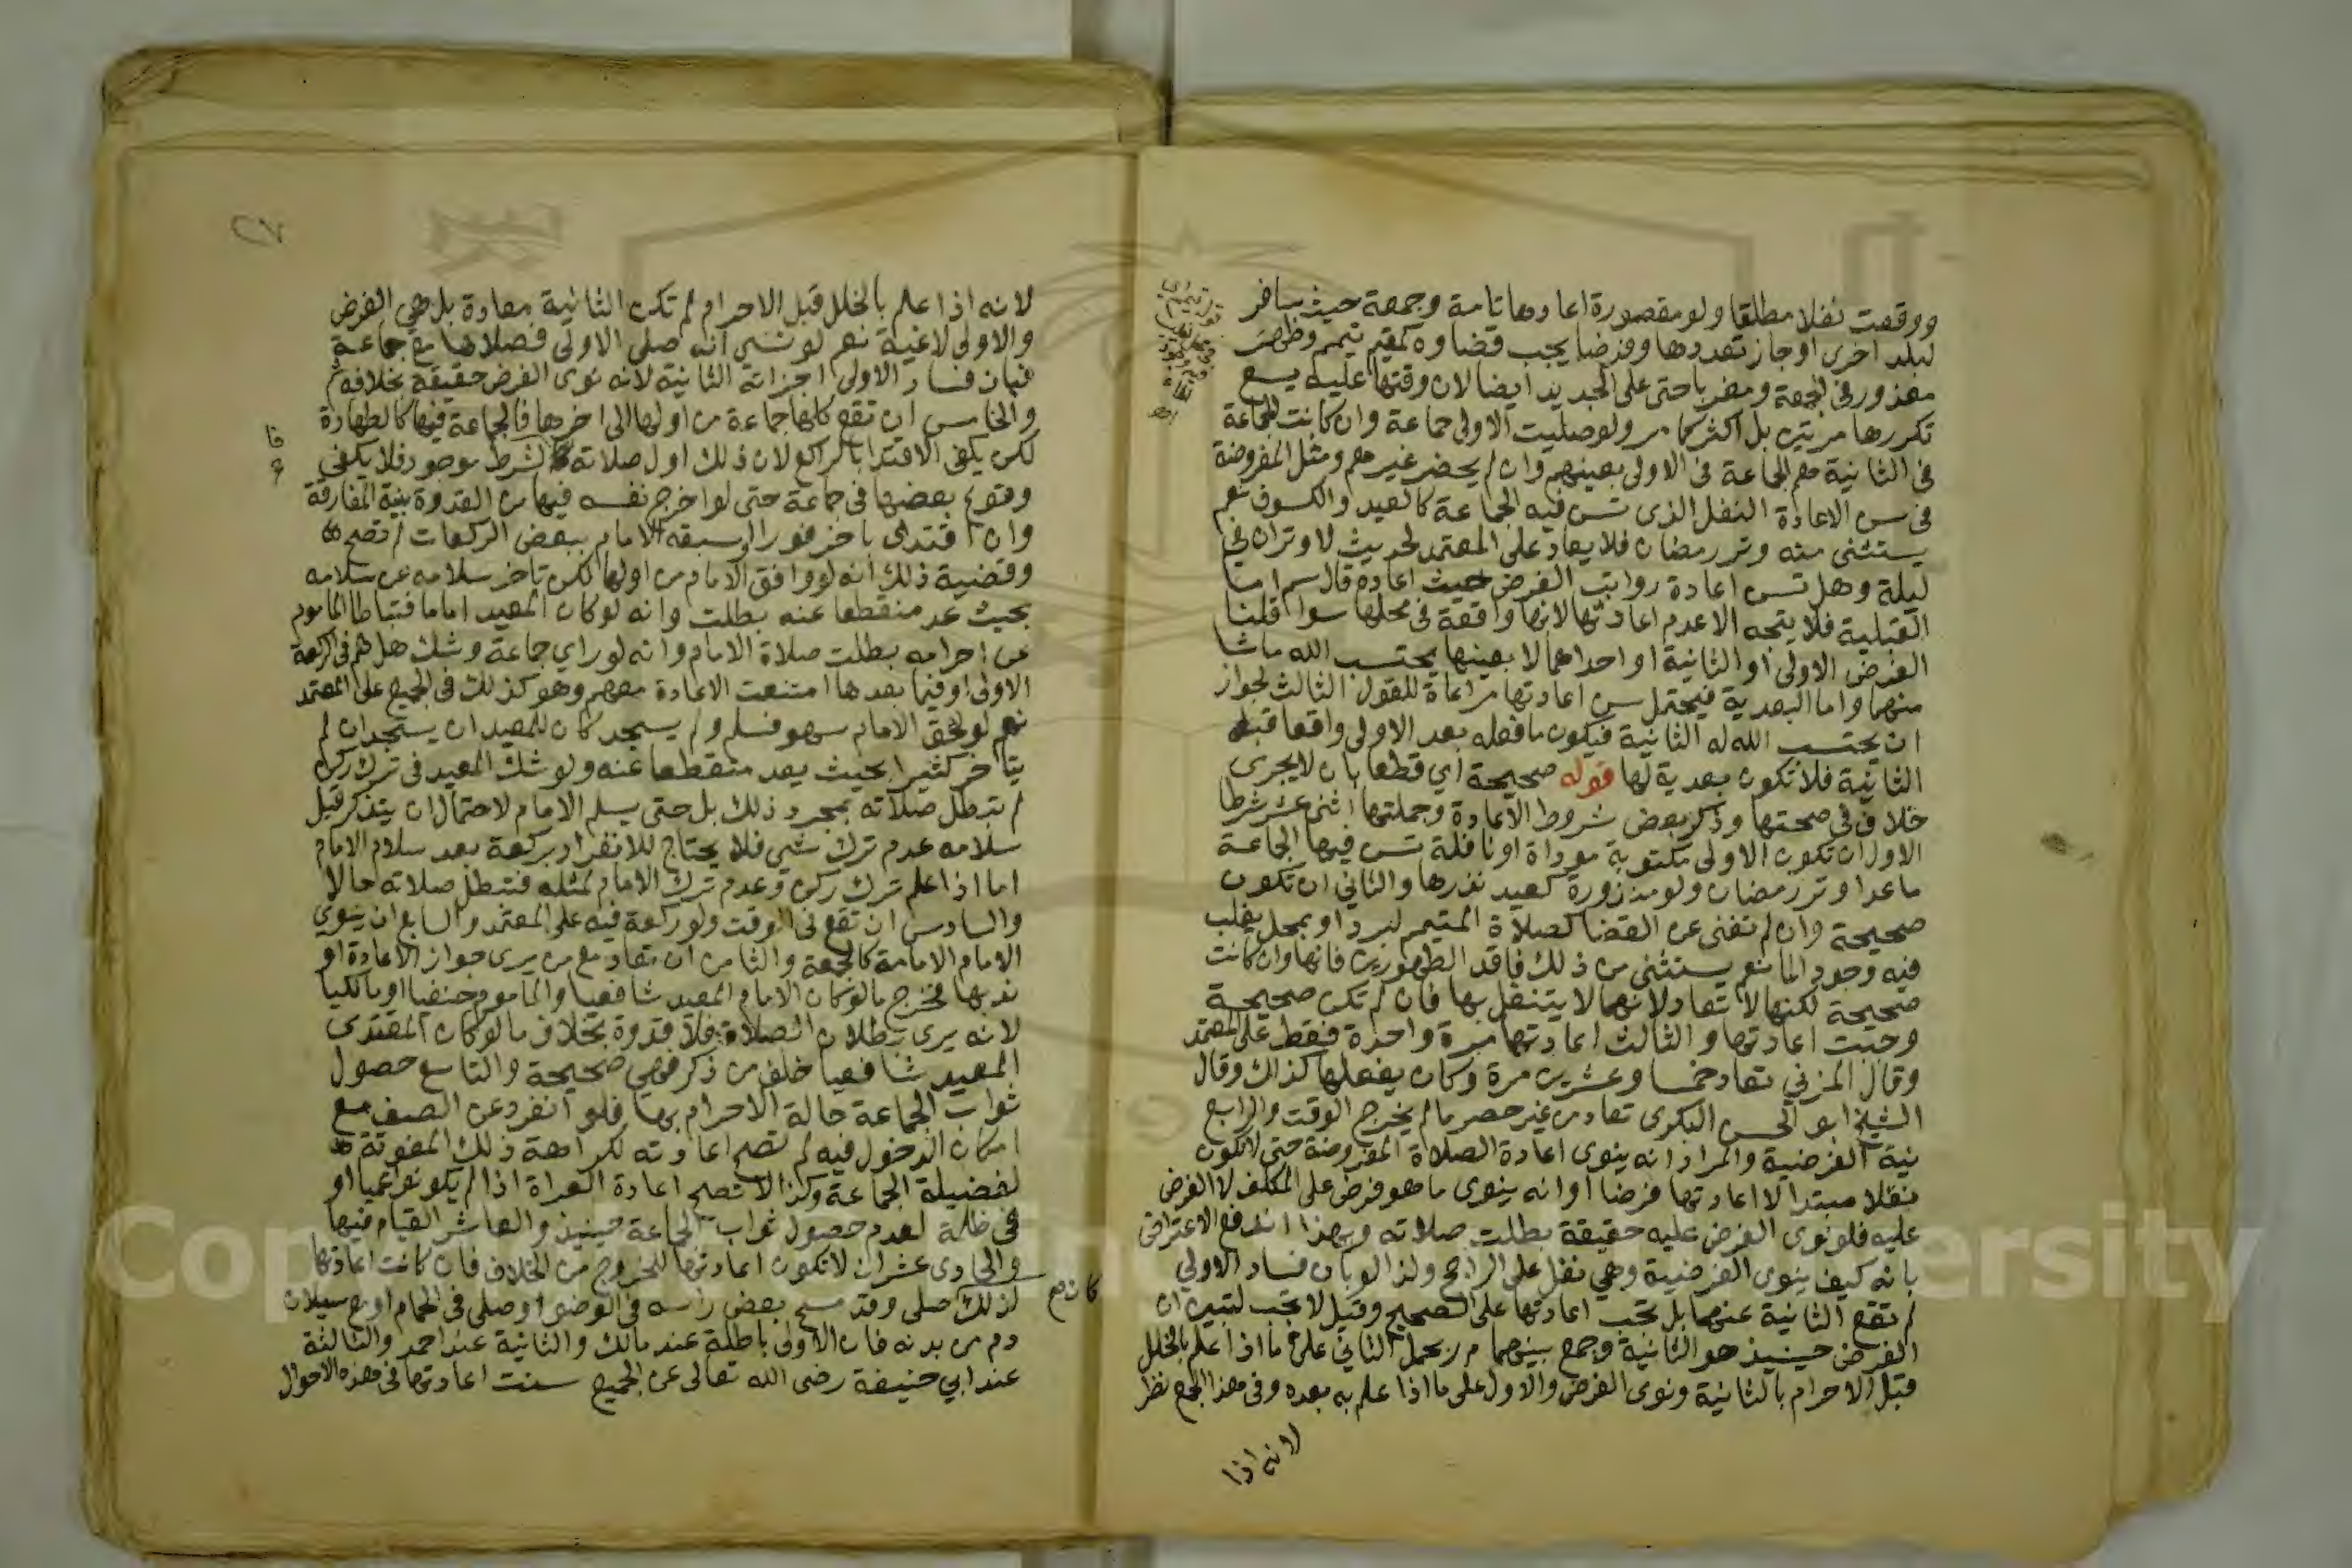 ووقعت نفلا مطلقا ولو مقصورة اعادها تامة وجمعة حيث سافر
لبلد اخرى او جاز تعددها وفرضا يجب قضاوه كمقيم تيمم وظهر
معذور في الجمعة ومغربا حتى على الجديد ايضا لان وقتها عليه يسع
تكررها مرتين بل اكثر كما مر ولو صليت الاولى جماعة وان كانت الجماعة
في الثانية هم الجماعة في الاولى بعينهم وان لم يحضر غيرهم ومثل المفروضة
في سن الاعادة النفل الذي تسن فيه الجماعة كالعيد والكسوف نعم
يستثنى منه وتر رمضان فلا يعاد على المعتمد لحديث لا وتران في
ليلة وهل تسن اعادة رواتب الفرض حيث اعاده قال سم اما
القبلية فلا يتجه الا عدم اعادتها لانها واقعة في محلها سوا قلنا
الفرض الاولى او الثانية او احداهما لا بعينها يحتسب الله ماشا
منهما واما البعدية فيحتمل سن اعادتها مراعاة للقول الثالث لجواز
ان يحتسب الله له الثانية فيكون ما فعله بعد الاولى واقعا قبل
الثانية فلا تكون بعدية لها قوله صحيحة اي قطعا بان لا يجرى
خلاف في صحتها وذكر بعض شروط الاعادة وجملتها اثنى عشر شرطا
الاول ان تكون الاولى مكتوبة موداة او نافلة تسن فيها الجماعة
ماعدا وتر رمضان ولو منذورة كعيد نذرها والثاني ان تكون
صحيحة وان لم تغنى عن القضا كصلاة المتيمم لبرد او بمحل يغلب
فيه وجود الما نعم يستثنى من ذلك فاقد الطهورين فانها وان كانت
صحيحة لكنها لا تعاد لانهما لا يتنفل بها فان لم تكن صحيحة
وجبت اعادتها والثالث اعادتها مرة واحدة فقط على المعتمد
وقال المزني تعاد خمسا وعشرين مرة وكان يفعلها كذلك وقال
الشيخ ابو الحسن البكرى تعاد من غير حصر ما لم يخرج الوقت والرابع
نية الفرضية والمراد انه ينوى اعادة الصلاة المفروضة حتى لا تكون
نفلا مبتدا لا اعادتها فرضا او انه ينوى ما هو فرض على المكلف لا الفرض
عليه فلو نوى الفرض عليه حقيقة بطلت صلاته وبهذا اندفع الاعتراض
بانه كيف ينوى الفرضية وهي نفل على الراجح ولذا لو بان فساد الاولى
لم تقع الثانية عنها بل تجب اعادتها على الصحيح وقيل لا تجب لتبين ان
الفرض حينيذ هو الثانية وجمع بينهما م ر بحمل الثاني على ما اذا علم بالخلل
قبل الاحرام بالثانية ونوى الفرض والاول على ما اذا علم به بعده وفي هذا الجمع نظر
لانه اذا
٢٧
لانه اذا علم بالخلل قبل الاحرام لم تكن الثانية معادة بل هي الفرض
والاولى لاغية نعم لو نسى انه صلى الاولى فصلاها مع جماعة
فبان فساد الاولى اجزاته الثانية لانه نوى الفرض حقيقة بخلافه ثم
والخامس ان تقع كلها جماعة من اولها الى اخرها فالجماعة فيها كالطهارة
لكن يكفى الاقتدا بالراكع لان ذلك اول صلاته فالشرط موجود فلا يكفى
وقوع بعضها في جماعة حتى لو اخرج نفسه فيها من القدوة بنية المفارقة
وان اقتدى باخر فورا او سبقه الامام ببعض الركعات لم تصح
وقضية ذلك انه لو وافق الامام من اولها لكن تاخر سلامه عن سلامه
بحيث عد منقطعا عنه بطلت وانه لو كان المعيد اماما فتباطا الماموم
عن احرامه بطلت صلاة الامام وانه لو راي جماعة وشك هل هم في الركعة
الاولى او فيما بعدها امتنعت الاعادة معهم وهو كذلك في الجميع على المعتمد
نعم لو لحق الامام سهو فسلم ولم يسجد كان للمعيد ان يسجد ان لم
يتاخر كثيرا بحيث يعد منقطعا عنه ولو شك المعيد في ترك ركن
لم تبطل صلاته بمجرد ذلك بل حتى يسلم الامام لاحتمال ان يتذكر قبل
سلامه عدم ترك شي فلا يحتاج للانفراد بركعة بعد سلام الامام
اما اذا علم ترك ركن وعدم ترك الامام لمثله فتبطل صلاته حالا
والسادس ان تقع في الوقت ولو ركعة فيه على المعتمد والسابع ان ينوي
الامام الامامة كالجمعة والثامن ان تعاد مع من يرى جواز الاعادة او
ندبها فخرج ما لو كان الامام المعيد شافعيا والماموم حنفيا او مالكيا
لانه يرى بطلان الصلاة فلا قدوة بخلاف ما لو كان المقتدى
المعيد شافعيا خلف من ذكر فهي صحيحة والتاسع حصول
ثواب الجماعة حالة الاحرام بها فلو انفرد عن الصف مع
امكان الدخول فيه لم تصح اعادته لكراهة ذلك المفوتة
لفضيلة الجماعة وكذا لا تصح اعادة العراة اذا لم يكونوا عميا او
في ظلمة لعدم حصول ثواب الجماعة حينيذ والعاشر القيام فيها
والحادى عشر ان لا تكون اعادتها للخروج من الخلاف فان كانت اعادتها
لذلك صلى وقد مسح بعض راسه في الوضو او صلى في الحمام او مع سيلان
كان
دم من بدنه فان الاولى باطلة عند مالك والثانية عند احمد والثالثة
عند ابي حنيفة رضى الله تعالى عن الجميع سنت اعادتها في هذه الاحوال